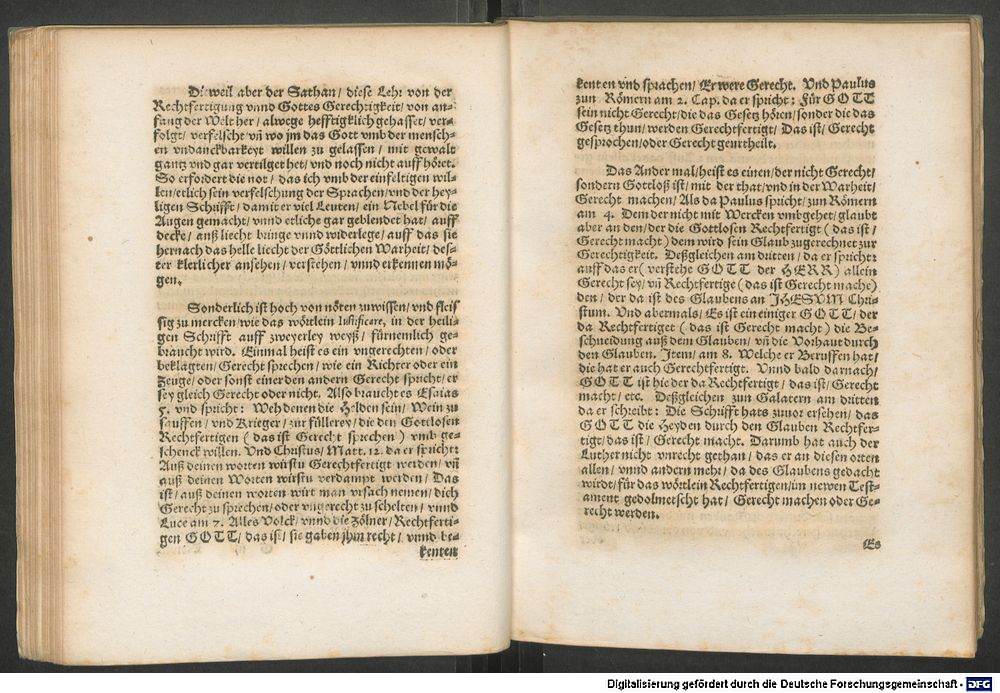 Dieweil aber der Sathan/ diese Lehr von der
Rechtfertigung vnnd Gottes Gerechtigkeit/ von an-
fang der Welt her/ alwege hefftigklich gehasset/ ver-
folgt/ verfelscht vñ wo jm das Gott vmb der mensch-
en vndanckbarkeyt willen zu gelassen/ mit gewalt
gantz vnd gar vertilget het/ vnd noch nicht auff höret.
So erfordert die not/ das ich vmb der einfeltigen wil-
len/ etlich sein verfelschung der Sprachen/ vnd der hey-
ligen Schrifft/ damit er viel Leuten/ ein Nebel für die
Augen gemacht/ vnnd etliche gar geblendet hat/ auff
decke/ anß liecht bringe vnnd widerlege/ auff das sie
hernach das helle liecht der Göttlichen Warheit/ des-
ter klerlicher ansehen/ verstehen/ vnnd erkennen mö-
gen.
Sonderlich ist hoch von nöten zuwissen/ vnd fleis
sig zu mercken/ wie das wörtlein Iustificare, in der heili-
gen Schrifft auff zweyerley weyß/ fürnemlich ge-
braucht wird. Einmal heist es ein vngerechten/ oder
beklagten/ Gerecht sprechen/ wie ein Richter oder ein
Zeuge/ oder sonst einer den andern Gerecht spricht/ er
sey gleich Gerecht oder nicht. Also braucht es Esaias
5. vnd spricht: Weh denen die Helden sein/ Wein zu
sauffen/ vnd Krieger/ zur füllerey/ die den Gottlosen
Rechtfertigen (das ist Gerecht sprechen) vmb ge-
schenck willen. Vnd Christus/ Matt. 12. da er spricht:
Auß deinen worten wirstu Gerechtfertigt werden/ vñ
auß deinen Worten wirstu verdampt werden/ Das
ist/ auß deinen worten wirt man vrsach nemen/ dich
Gerecht zu sprechen/ oder vngerecht zu schelten/ vnnd
Luce am 7. Alles Volck/ vnnd die Zölner/ Rechtferti-
gen GOTT/ das ist/ sie gaben jhm recht/ vnnd be-
kenten
kenten vnd sprachen/ Er were Gerecht. Vnd Paulus
zun Römern am 2. Cap. da er spricht: Für GOTT
sein nicht Gerecht/ die das Gesetz hören/ sonder die das
Gesetz thun/ werden Gerechtfertigt/ Das ist/ Gerecht
gesprochen/ oder Gerecht geurtheilt.
Das Ander mal/ heist es einen/ der nicht Gerecht/
sondern Gottloß ist/ mit der that/ vnd in der Warheit/
Gerecht machen/ Als da Paulus spricht/ zun Römern
am 4. Dem der nicht mit Wercken vmbgehet/ glaubt
aber an den/ der die Gottlosen Rechtfertigt (das ist/
Gerecht macht) dem wird sein Glaub zugerechnet zur
Gerechtigkeit. Deßgleichen am dritten/ da er spricht:
auff das er (verstehe GOTT der HERR) allein
Gerecht sey/ vñ Rechtfertige (das ist Gerecht mache)
den/ der da ist des Glaubens an JHESVM Chri-
stum. Vnd abermals/ Es ist ein einiger GOTT/ der
da Rechtfertiget (das ist Gerecht macht) die Be-
schneidung auß dem Glauben/ vñ die Vorhaut durch
den Glauben. Item/ am 8. Welche er Beruffen hat/
die hat er auch Gerechtfertigt. Vnnd bald darnach/
GOTT ist hie der da Rechtfertigt/ das ist/ Gerecht
macht/ etc. Deßgleichen zun Galatern am dritten
da er schreibt: Die Schrifft hats zuuor ersehen/ das
GOTT die Heyden durch den Glauben Rechtfer-
tigt/ das ist/ Gerecht macht. Darumb hat auch der
Luther nicht vnrecht gethan/ das er an diesen orten
allen/ vnnd andern mehr/ da des Glaubens gedacht
wirdt/ für das wörtlein Rechtfertigen/ im newen Test-
ament gedolmetscht hat/ Gerecht machen oder Ge-
recht werden.
Es
Digitalisierung gefördert durch die Deutsche Forschungsgemeinschaft - DFG